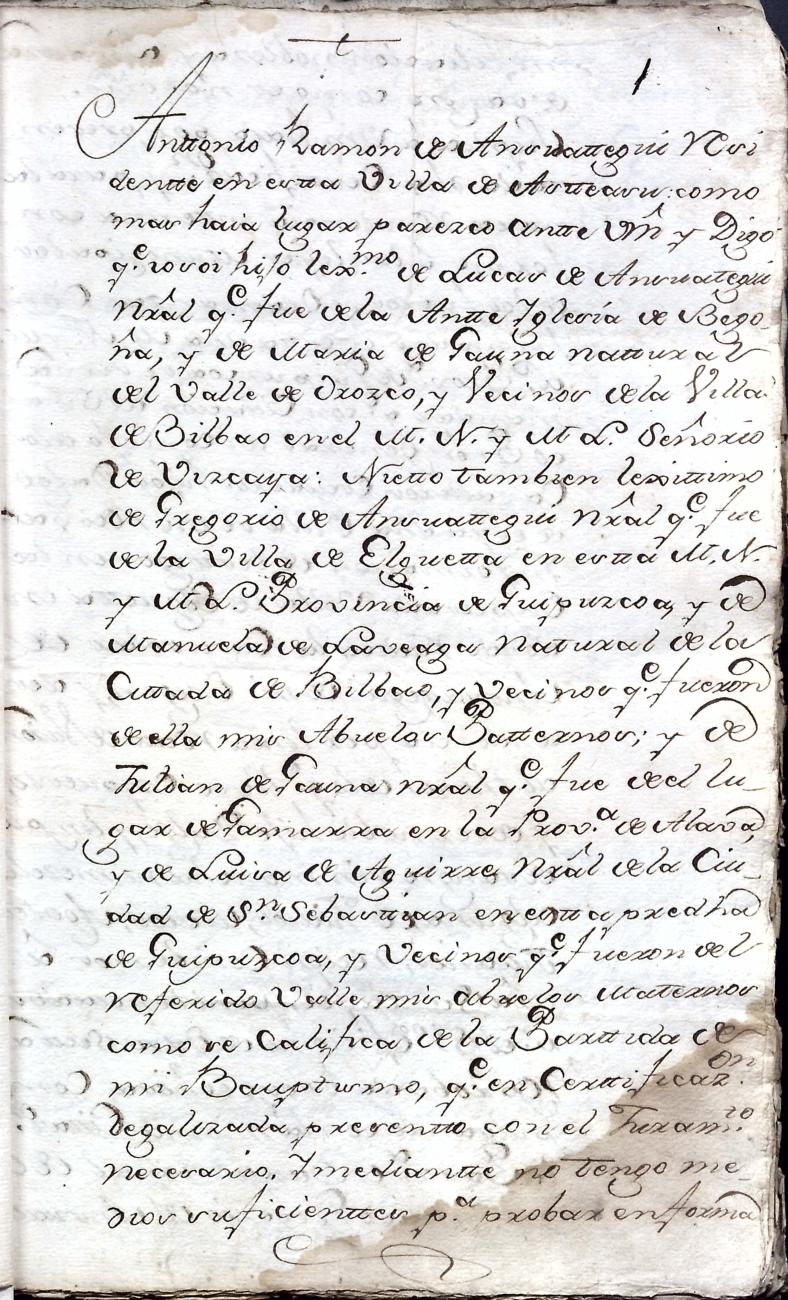 1
Anttonio Ramon de Ansuattegui Resi
dentte en estta Villa de Astteasu: como
mas haia lugar parezco antte Vm̂ y Digo
q.e io soi hijo lex.mo de Lucas de Ansuategui
Nrâl q.e fue de la Antte Iglesia de Bego-
ña, y de Maria de Gauna natturâl
del Valle de Orozco, y Vecinos de la Villa
de Bilbao en el M. N. y M. L. Señorio
de Vizcaya: Nietto tambien lexittimo
de Gregorio de Ansuattegui Nrâl q.e fue
de la Villa de Elguetta en estta M. N.
y M. L. Provincia de Guipuzcoa, y de
Manuela de Laveaga Natural de la
Cittada de Bilbao, y Vecinos q.e fueron
de ella mis Abuelos Patternos; y de
Julian de Gauna Nrâl q.e fue del lu-
gar de Gamarra en la Prov.a de Alava,
y de Luisa de Aguirre Nrâl de la Ciu-
dad de S.n Sebasttian en estta predha
de Guipuzcoa, y Vecinos q.e fueron del
Referido Valle mis abuelos Maternos
como se Califica de la Parttida de
mi Bauptismo, q.e en Certtificaz.on
legalizada presentto con el Juram.to
necesario. Y mediantte no tengo me-
dios suficienttes p.a probar en forma